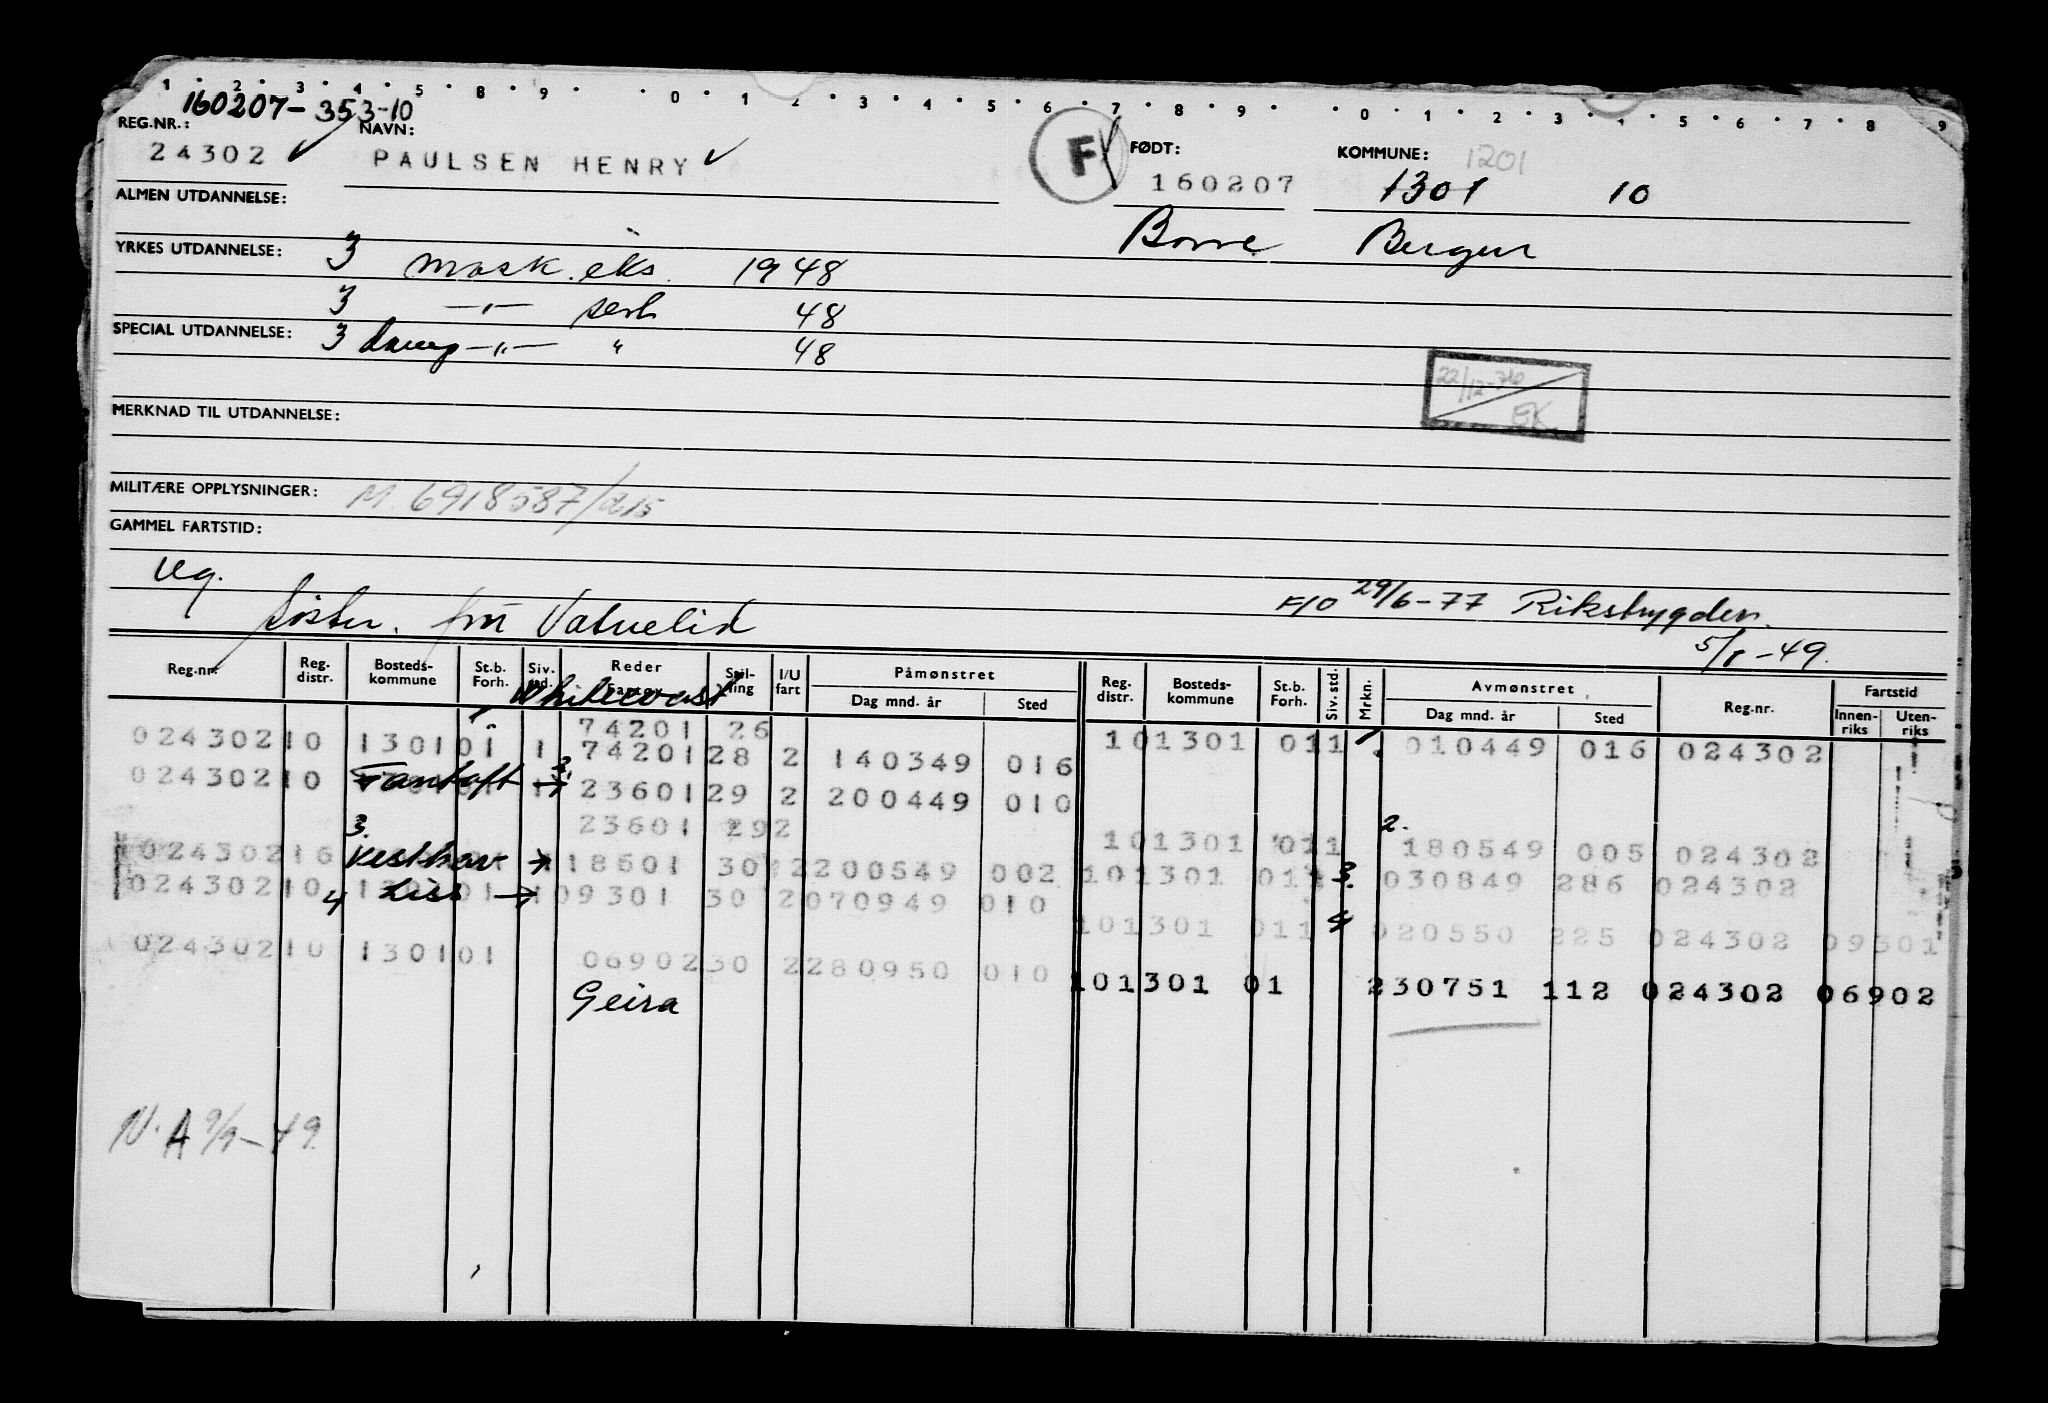 1 · 2 · 3 · 4 · 5 · 8 · 9 · 0 · 1 · 2 · 3 · 4 · 5 · 6 · 7 · 8 · 9 · 0 · 1 · 2 · 3 · 4 · 5 · 6 · 7 · 8 · 9
160207-353-10
REG.NR.: NAVN: F FØDT: KOMMUNE: 1201
24302 ✓ PAULSEN HENRY ✓ 160207 1301 10
ALMEN UTDANNELSE: Borre Bergen
YRKES UTDANNELSE: 3 mask. eks. 1948
3 —"— sert 48
SPECIAL UTDANNELSE: 3 damp —"— " 48
22/12-76 EK
MERKNAD TIL UTDANNELSE:
MILITÆRE OPPLYSNINGER: M. 6918587/
GAMMEL FARTSTID:
Ug.
søster. fru Vatnelid F/O 29/6-77 Riksbygden.
5/1-49.
Reg.nr. Reg. distr. Bosteds- kommune St.b. Forh. Siv. Reder Stil- ling I/U fart Påmønstret Dag mnd. år Sted Reg. distr. Bosteds- kommune St.b. Forh. Siv. std. Mrkn. Avmønstret Dag mnd. år Sted Reg.nr. Fartstid Innen- riks Uten- riks
74201 26
02430210 130101 1 7420128 2 140349 016 101301 011 010449 016 024302
02430210 Fantoft → 2360129 2 200449 010
23601 292 101301 011 2. 180549 005 024302
3.
02430216 Vesthav → 18601 30 2200549 002 101301 011 3. 030849 286 024302
02430210 4 Liss → 109301 30 2070949 010
101301 011 4 020550 225 024302 09301
02430210 130101 0690230 2280950 010
101301 01 230751 112 024302 06902
Geira
N.A 9/9-49.